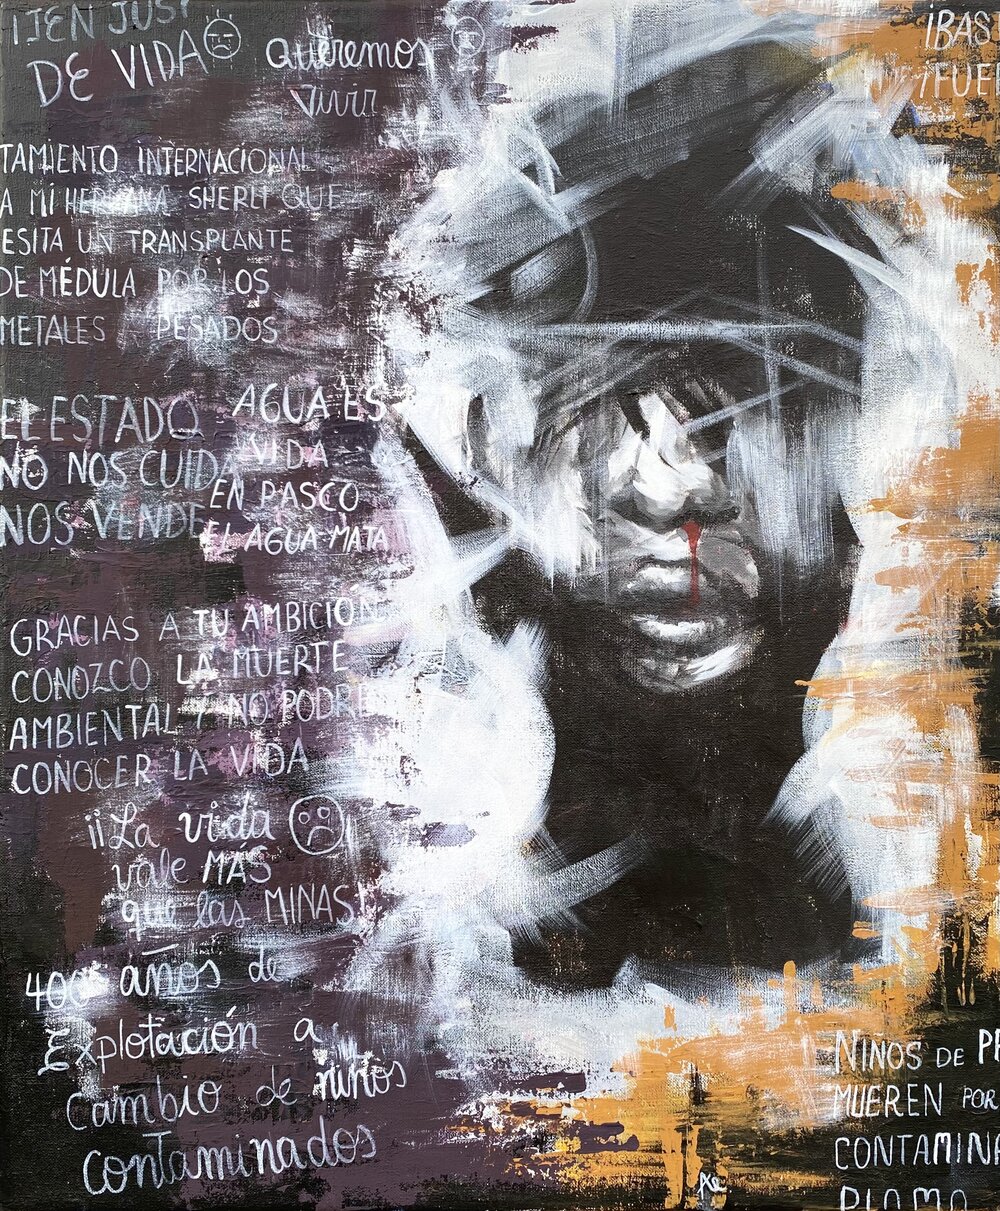 ¡JEN JUS
DE VIDA
queremos
vivir
TAMIENTO INTERNACIONAL
A MI HERMANA SHERLI QUE
ESITA UN TRANSPLANTE
DE MÉDULA POR LOS
METALES PESADOS
EL ESTADO
NO NOS CUIDA
NOS VENDE
AGUA ES
VIDA
EN PASCO
EL AGUA MATA
GRACIAS A TU AMBICION
CONOZCO LA MUERTE
AMBIENTAL Y NO PODRE
CONOCER LA VIDA
¡¡La vida
vale MÁS
que las MINAS!
400 años de
Explotación a
cambio de niños
contaminados
¡BAS
¡FUER
NIÑOS DE PA
MUEREN POR
CONTAMINA
PLOMO